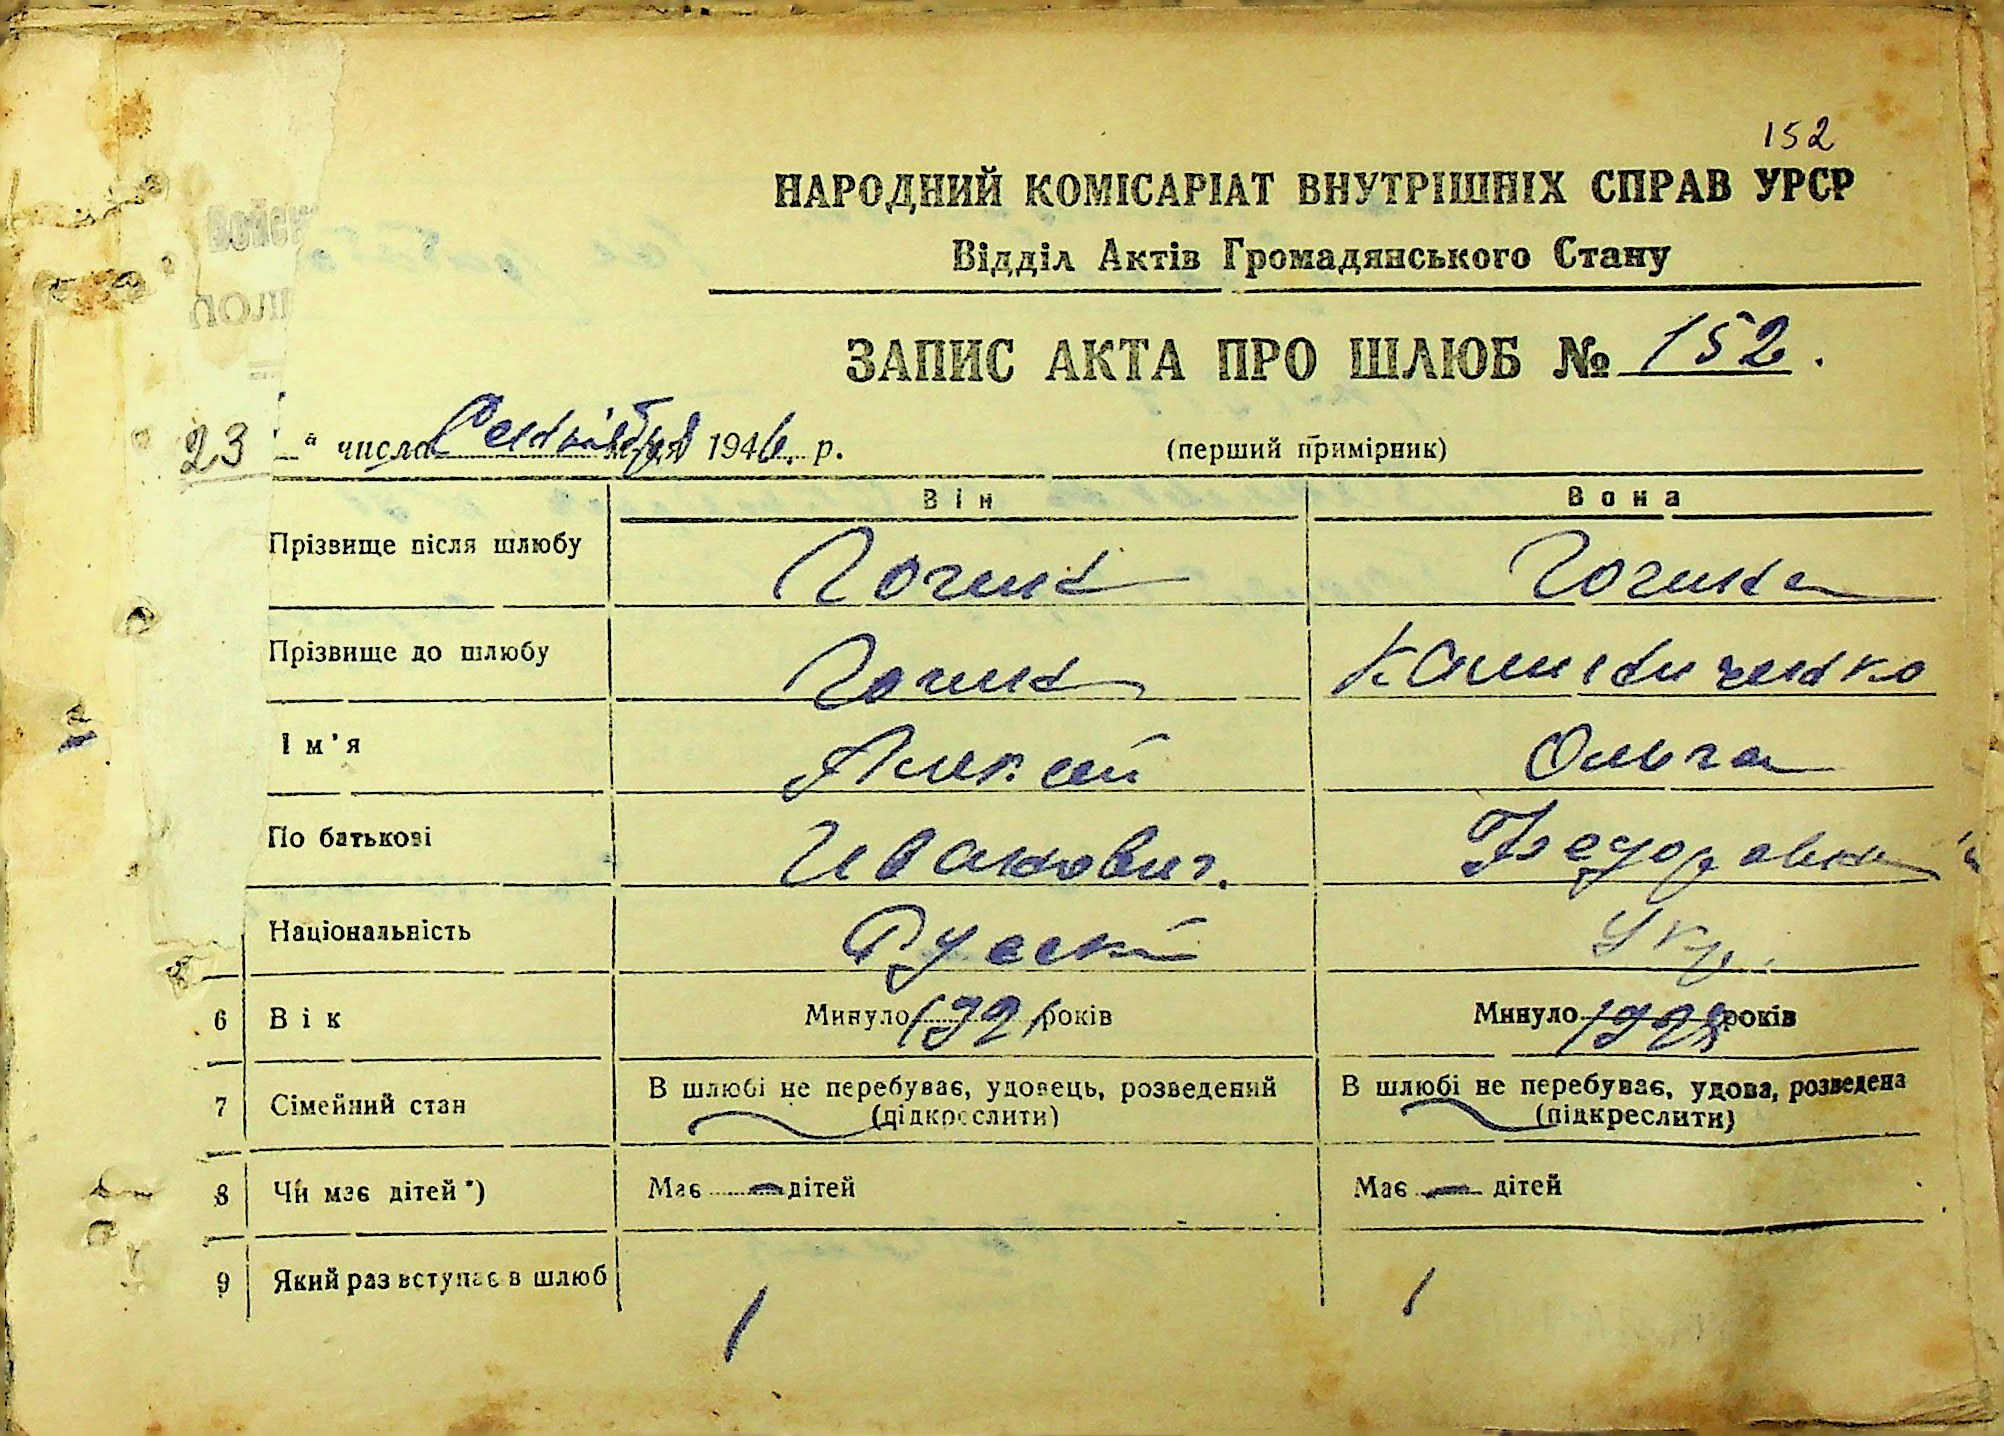 152
НАРОДНИЙ КОМІСАРІАТ ВНУТРІШНІХ СПРАВ УРСР
Відділ Актів Громадянського Стану
ЗАПИС АКТА ПРО ШЛЮБ № 152.
23 " числа Сентября 1946 р. (перший примірник)
Він Вона
Прізвище після шлюбу
Прізвище до шлюбу
Ім'я Алексей Ольга
По батькові Иванович. Федоровна
Національність Руский Укр.
6 Вік Минуло 1921 років Минуло років
7 Сімейний стан В шлюбі не перебуває, удовець, розведений В шлюбі не перебуває, удова, розведена
(підкреслити) (підкреслити)
8 Чи має дітей *) Має — дітей Має — дітей
9 Який раз вступає в шлюб 1 1